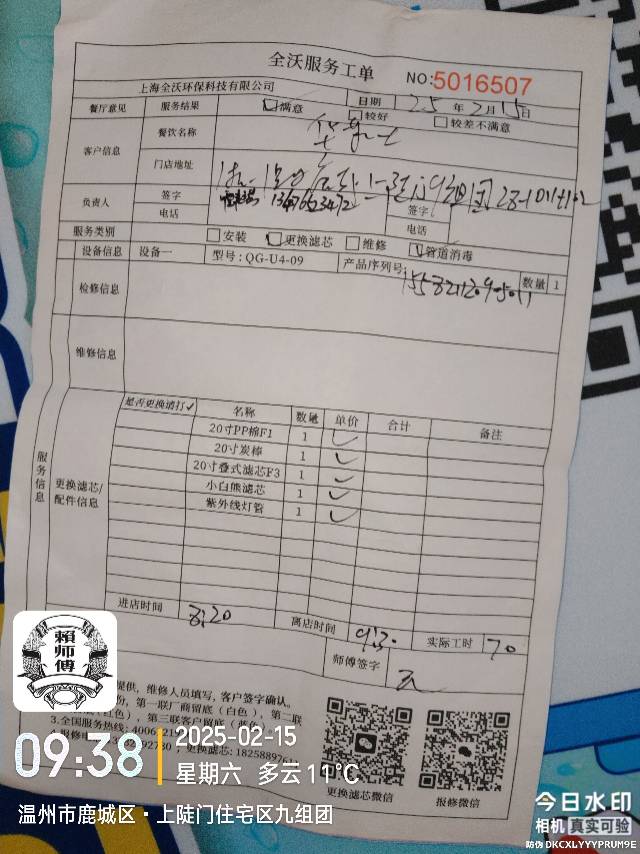 全沃服务工单
NO:5016507
上海全沃环保科技有限公司
日期 25 年 2 月 15 日
餐厅意见 服务结果 满意 较好 较差不满意
客户信息 餐饮名称
门店地址
负责人 签字 签字
电话 电话
服务类别 安装 更换滤芯 维修 管道消毒
设备信息 设备一 型号：QG-U4-09 产品序列号 数量 1
检修信息
维修信息
服务信息
更换滤芯/配件信息
是否更换请打✓ 名称 数量 单价 合计 备注
20寸PP棉F1 1 ✓
20寸炭棒 1 ✓
20寸叠式滤芯F3 1 ✓
小白熊滤芯 1 ✓
紫外线灯管 1 ✓
进店时间 8:20 离店时间 9:30 实际工时 70
师傅签字
提供，维修人员填写，客户签字确认。
份，第一联厂商留底（白色），第二联
红色），第三联客户留底
3.全国服务热线：
更换滤芯：
更换滤芯微信 报修微信
賴师傅
09:38
2025-02-15
星期六 多云 11°C
温州市鹿城区·上陡门住宅区九组团
今日水印
相机 真实可验
防伪 DKCXLYYYPRUM9E